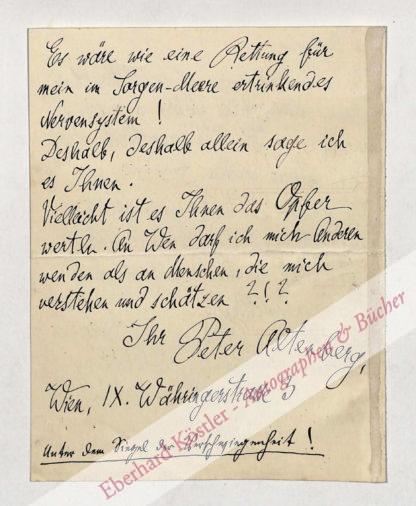 Es wäre wie eine Rettung für
mein im Sorgen-Meere ertrinkendes
Nervensystem !
Deshalb, deshalb allein sage ich
es Ihnen.
Vielleicht ist es Ihnen das Opfer
werth. An Wen darf ich mich Anderen
wenden als an Menschen, die mich
verstehen und schätzen ?!?
Ihr Peter Altenberg,
Wien, IX. Währingerstrasse 3
Unter dem Siegel der Verschwiegenheit !
Eberhard Köstler - Autographen & Bücher